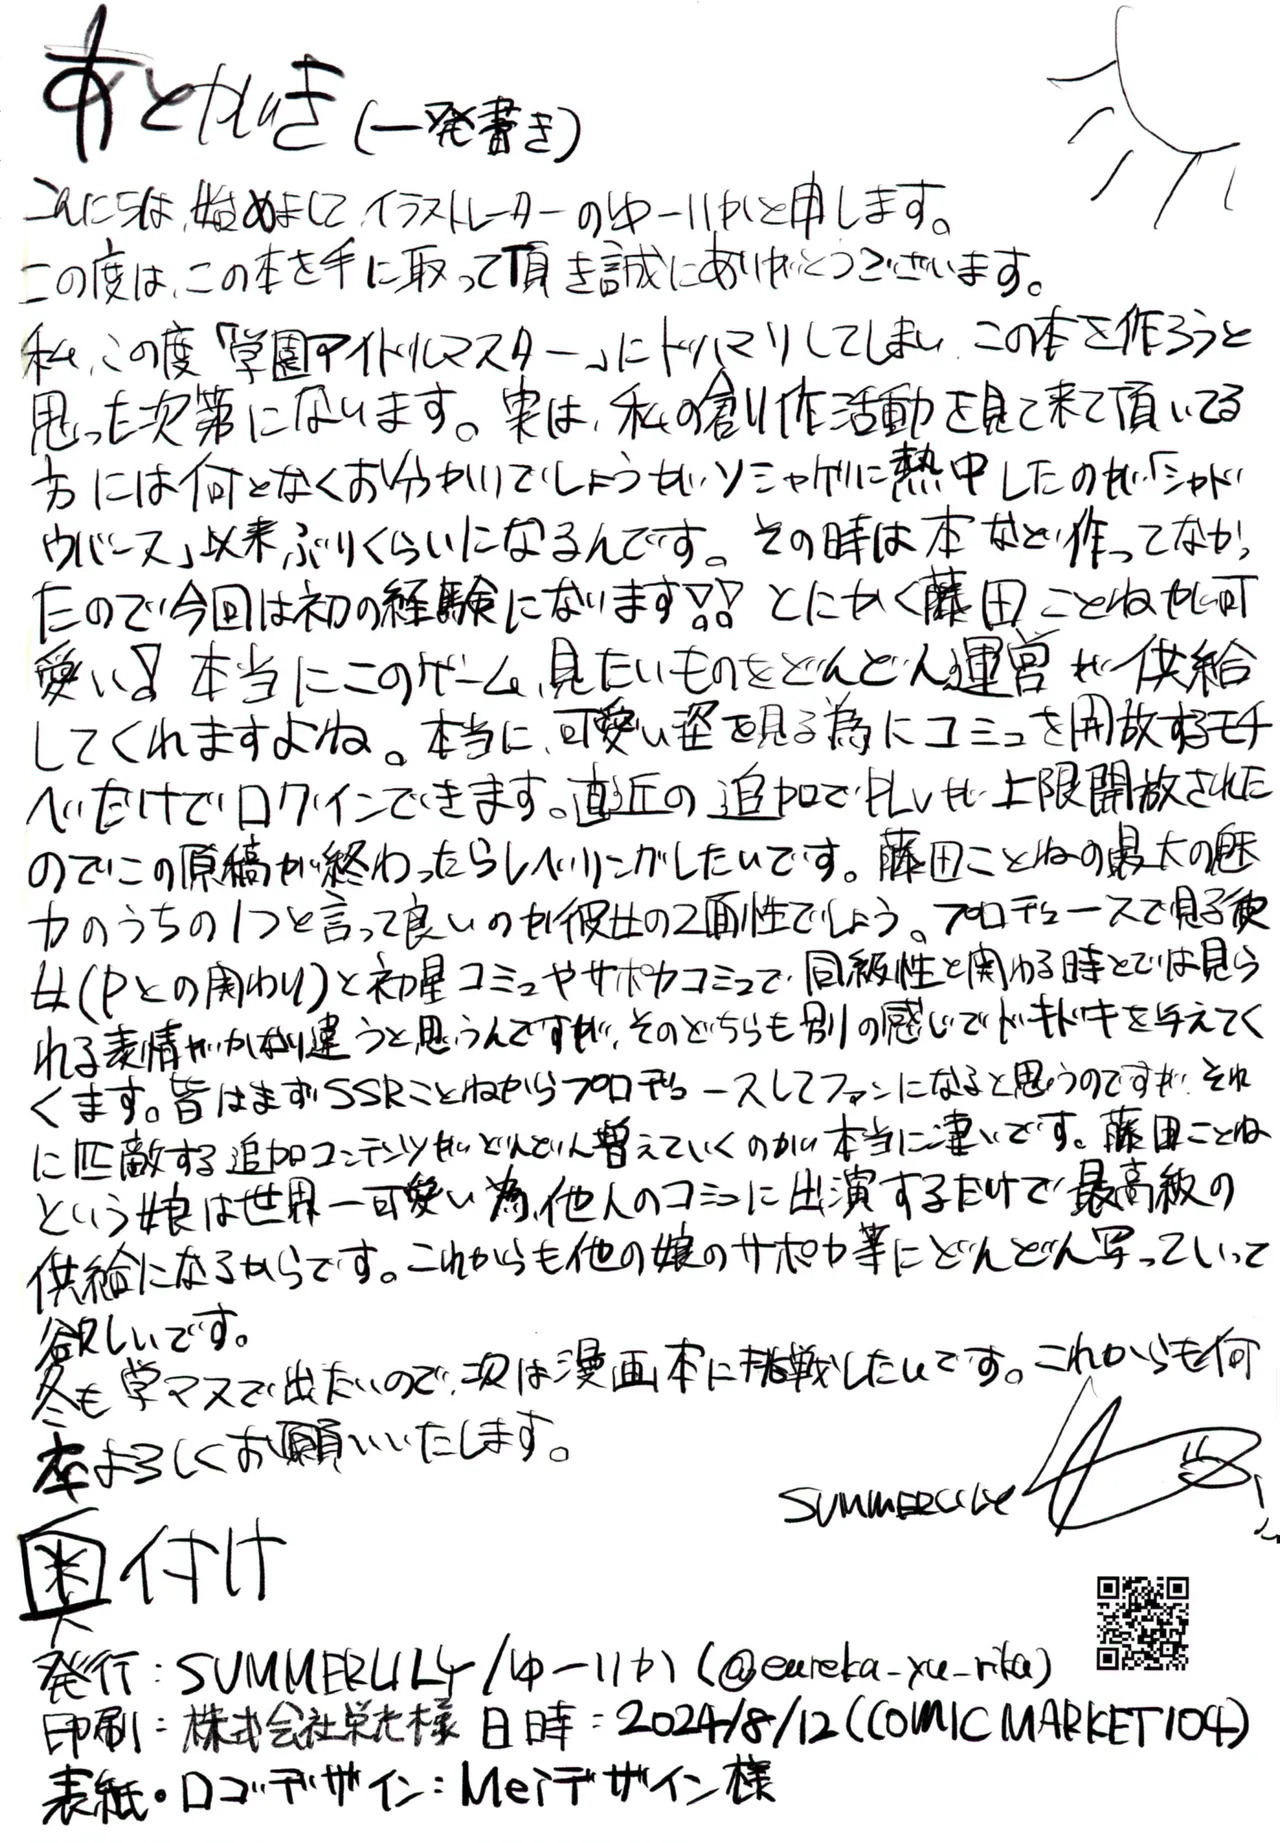 あとがき(一発書き)
こんにちは、始めまして、イラストレーターのゆーりかと申します。
この度は、この本を手に取って頂き誠にありがとうございます。
私、この度「学園アイドルマスター」にドハマりしてしまい、この本を作ろうと
思った次第になります。実は、私の創作活動を見て来て頂いてる
方には何となくお分かりでしょうが、ソシャゲに熱中したのが「シャド
ウバース」以来ぶりくらいになるんです。その時は本など作ってなかっ
たので今回は初の経験になります!! とにかく藤田ことねが可
愛い! 本当にこのゲーム、見たいものをどんどん運営が供給
してくれますよね。本当に、可愛い姿を見る為にコミュを開放するモチ
ベだけでログインできます。直近の追加でPLvが上限開放された
のでこの原稿が終わったらレベリングがしたいです。藤田ことねの最大の魅
力のうちの1つと言って良いのが彼女の2面性でしょう。プロデュースで見る彼
女(Pとの関わり)と初星コミュやサポカコミュで、同級性と関わる時とでは見ら
れる表情がかなり違うと思うんですが、そのどちらも別の感じでドキドキを与えてく
くます。皆はまずSSRことねからプロデュースしてファンになると思うのですが、それ
に匹敵する追加コンテンツがどんどん増えていくのが本当に凄いです。藤田ことね
という娘は世界一可愛い為、他人のコミュに出演するだけで最高級の
供給になるからです。これからも他の娘のサポカ等にどんどん写っていって
欲しいです。
冬も学マスで出たいので、次は漫画本に挑戦したいです。これからも何
卒よろしくお願いいたします。
SUMMERLILY
奥付け
発行:SUMMERLILY/ゆーりか(@eureka_yu_rika)
印刷:株式会社栄光様 日時:2024/8/12(COMIC MARKET104)
表紙・ロゴデザイン:Meiデザイン様